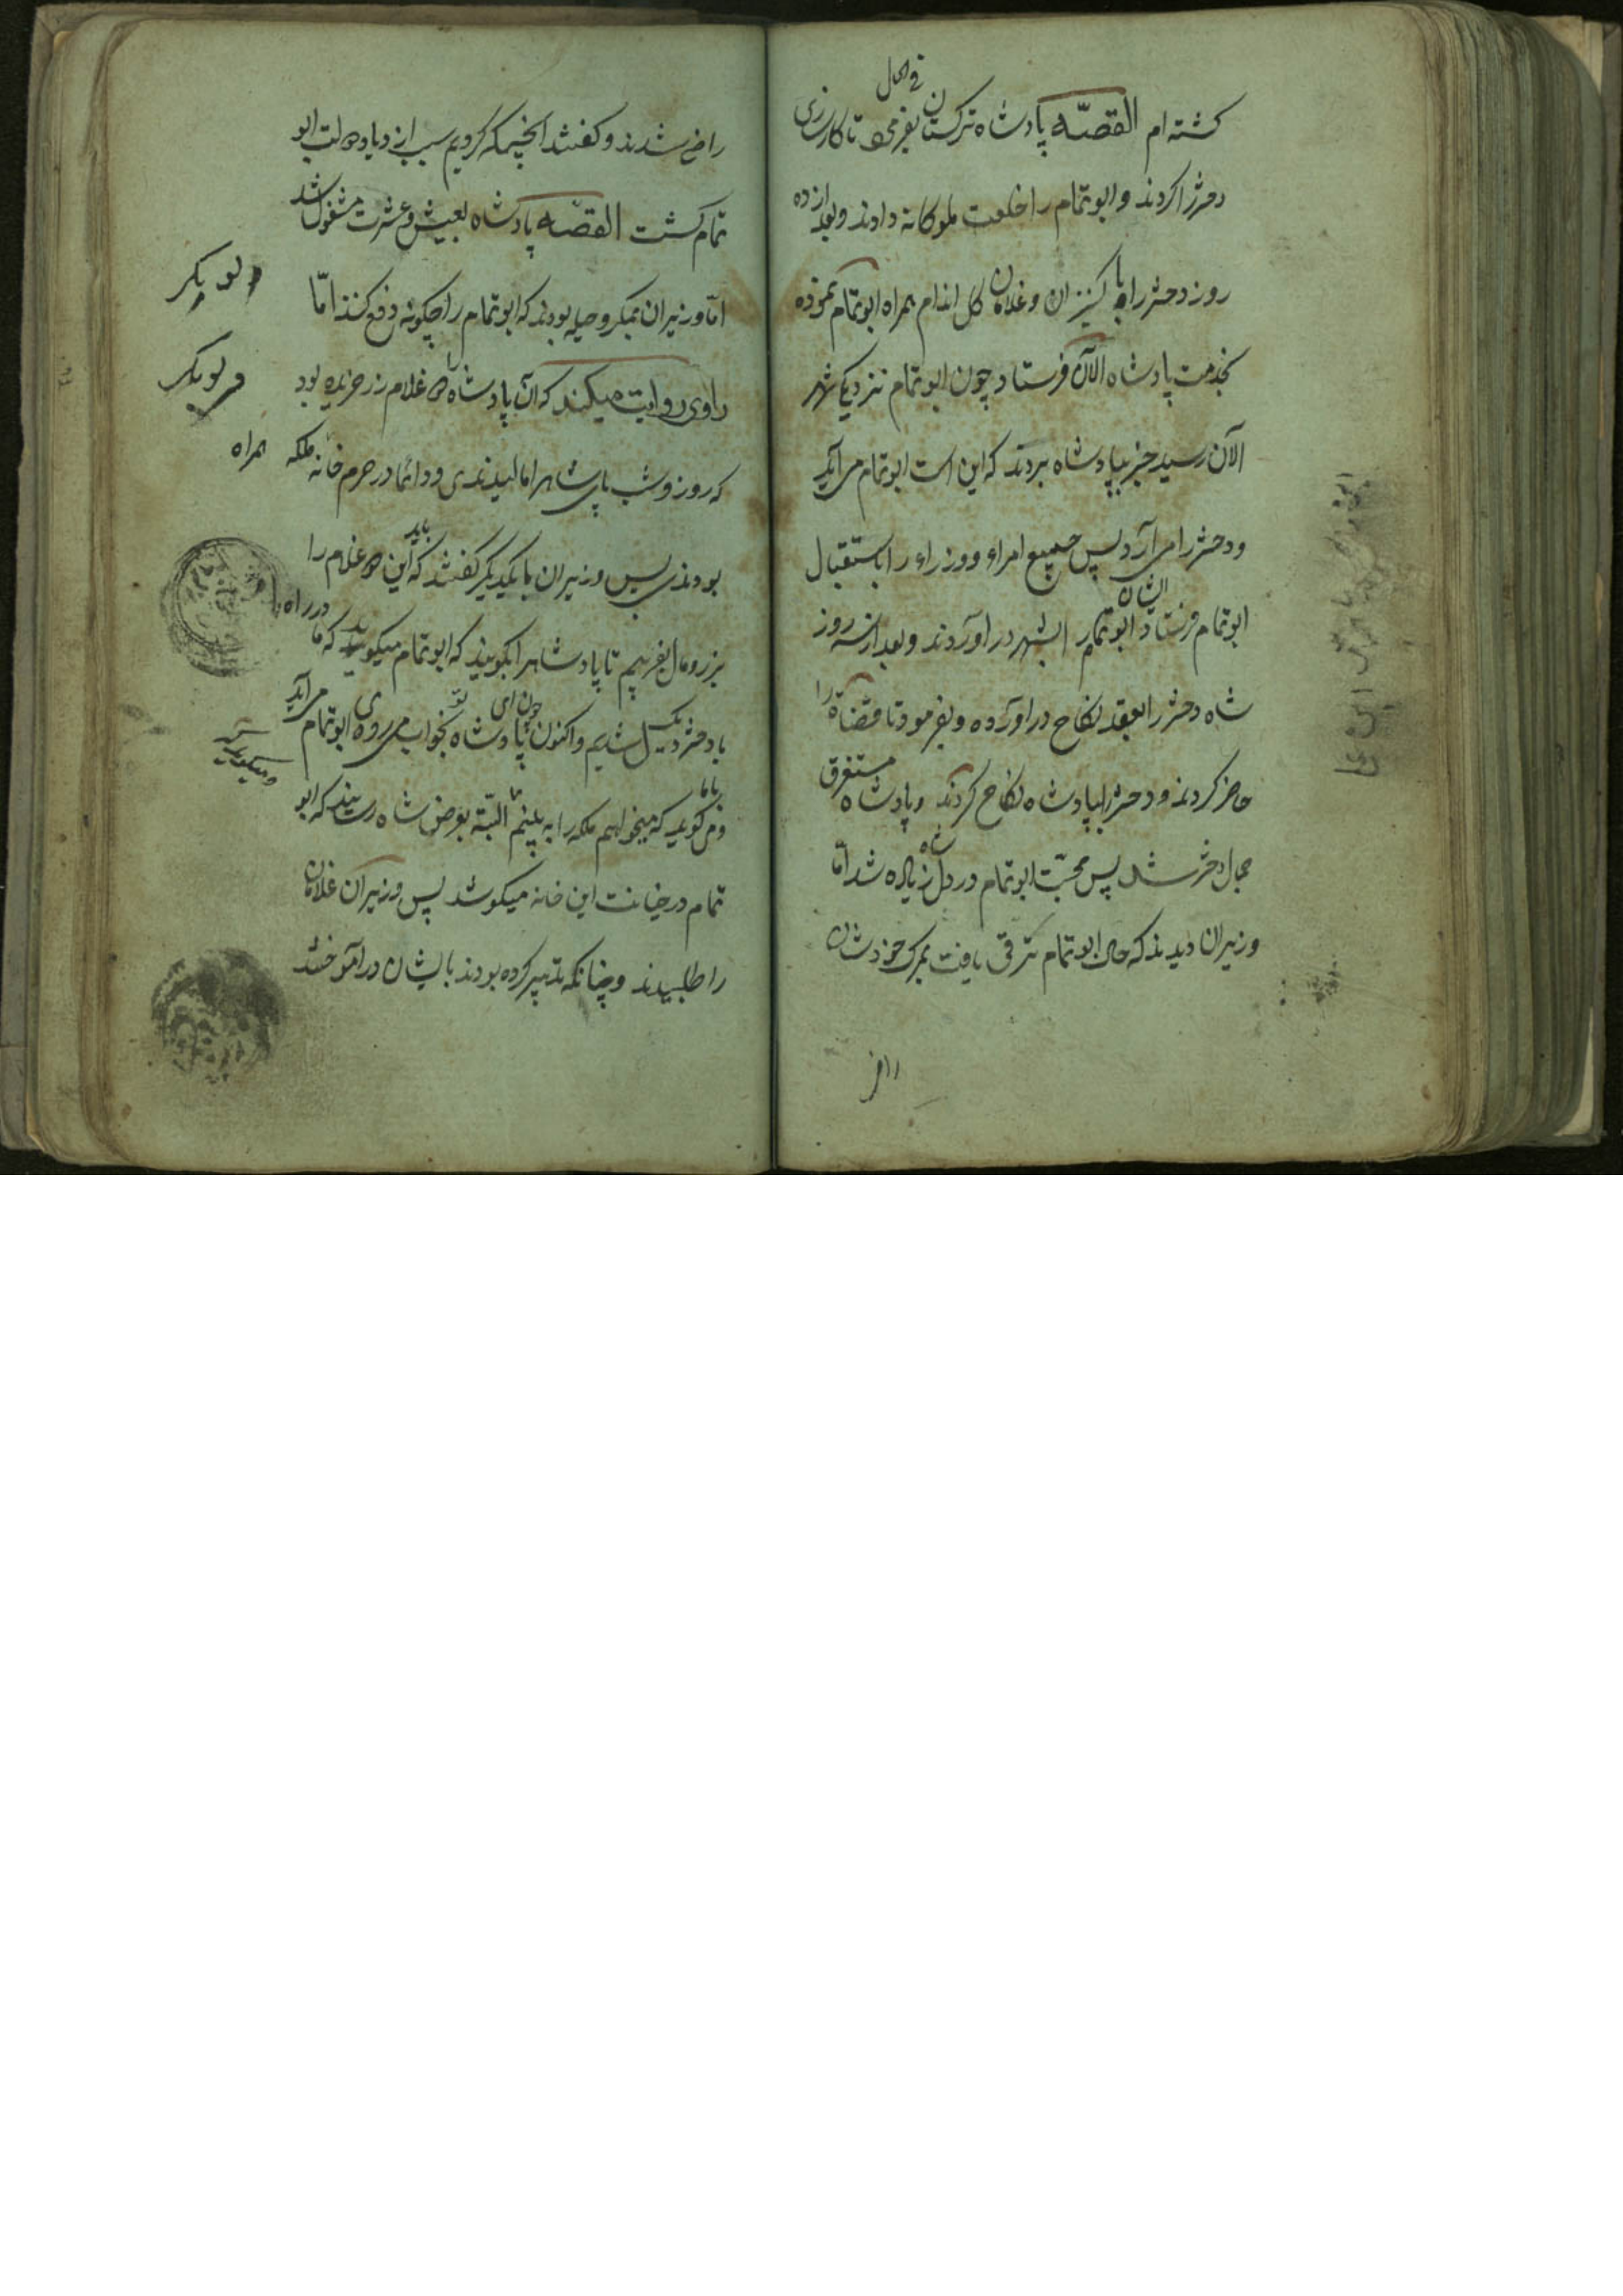 گشته ام القصّه پادشاه ترکستان بفرمود تا کارسازی
فی الحال
دختر را کردند و ابوتمام را خلعت ملوکانه دادند و بعد از ده
روز دختر را با کنیزان و غلامان گل اندام همراه ابوتمام نموده
بخدمت پادشاه الآن فرستاد چون ابوتمام نزدیک شهر
الآن رسید خبر بپادشاه بردند که این است ابوتمام می آید
و دختر را می آرد پس جمیع امراء و وزراء را باستقبال
ابوتمام فرستاد ابوتمام بشهر در آوردند و بعد از سه روز
ایشان
شاه دختر را بعقد نکاح در آورده و بفرمود تا قضاة را
حاضر کردند و دختر را بپادشاه نکاح کردند و پادشاه مستغرق
جمال دختر شد پس محبّت ابوتمام در دل شاه زیاده شد امّا
وزیران دیدند که حال ابوتمام ترقی یافت بمرگ خودشان
راضی شدند و گفتند آنچه که کردیم سبب ازدیاد دولت ابو
تمام گشت القصّه پادشاه بعیش و عشرت مشغول شد
امّا وزیران بمکر و حیله بودند که ابوتمام را چگونه دفع کنند امّا
راوی روایت میکند که آن پادشاه را غلام زر خریده بود
که روز و شب پای شاهرا مالیدندی و دائما در حرم خانه ملکه همراه
بودند پس وزیران با یکدیگر گفتند که این غلام را
باید
بزر و مال بفریبیم تا پادشاهرا بگویند که ابوتمام میگوید که ما در راه
با دختر یکدل شدیم و اکنون چون پادشاه بخواب میرود ابوتمام می آید
و می گوید که میخواهم ملکه را به بینم البتّه بعرض شاه رسانید که ابو
تمام در خیانت این خانه میکوشد پس وزیران غلامان
را طلبیدند و چنانکه تدبیر کرده بودند بایشان در آموختند